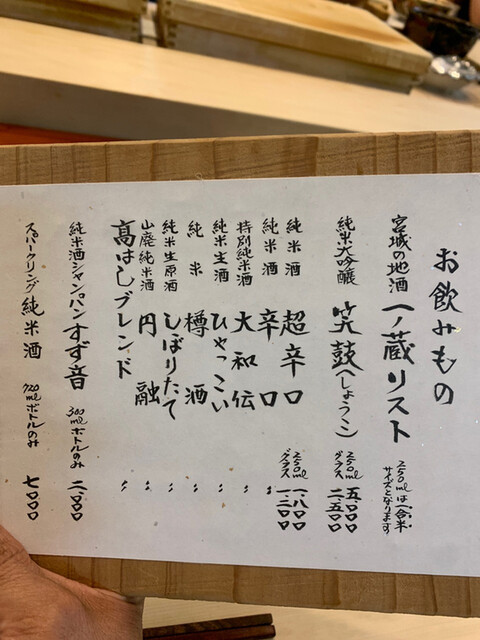 お飲みもの
宮城の地酒 一ノ蔵リスト 250mlは一合半サイズとなります
純米大吟醸 笑鼓(しょうこ) 250ml 五、000 グラス 二、五00
純米酒 超辛口 250ml 一、八00 グラス 一、三00
純米酒 辛口 〃
特別純米酒 大和伝 〃
純米生酒 ひゃっこい 〃
純米 樽酒 〃
純米生原酒 しぼりたて 〃
山廃純米酒 円融 〃
髙はしブレンド 〃
純米酒シャンパン すず音 300mlボトルのみ 二、000
スパークリング 純米酒 720mlボトルのみ 七、000